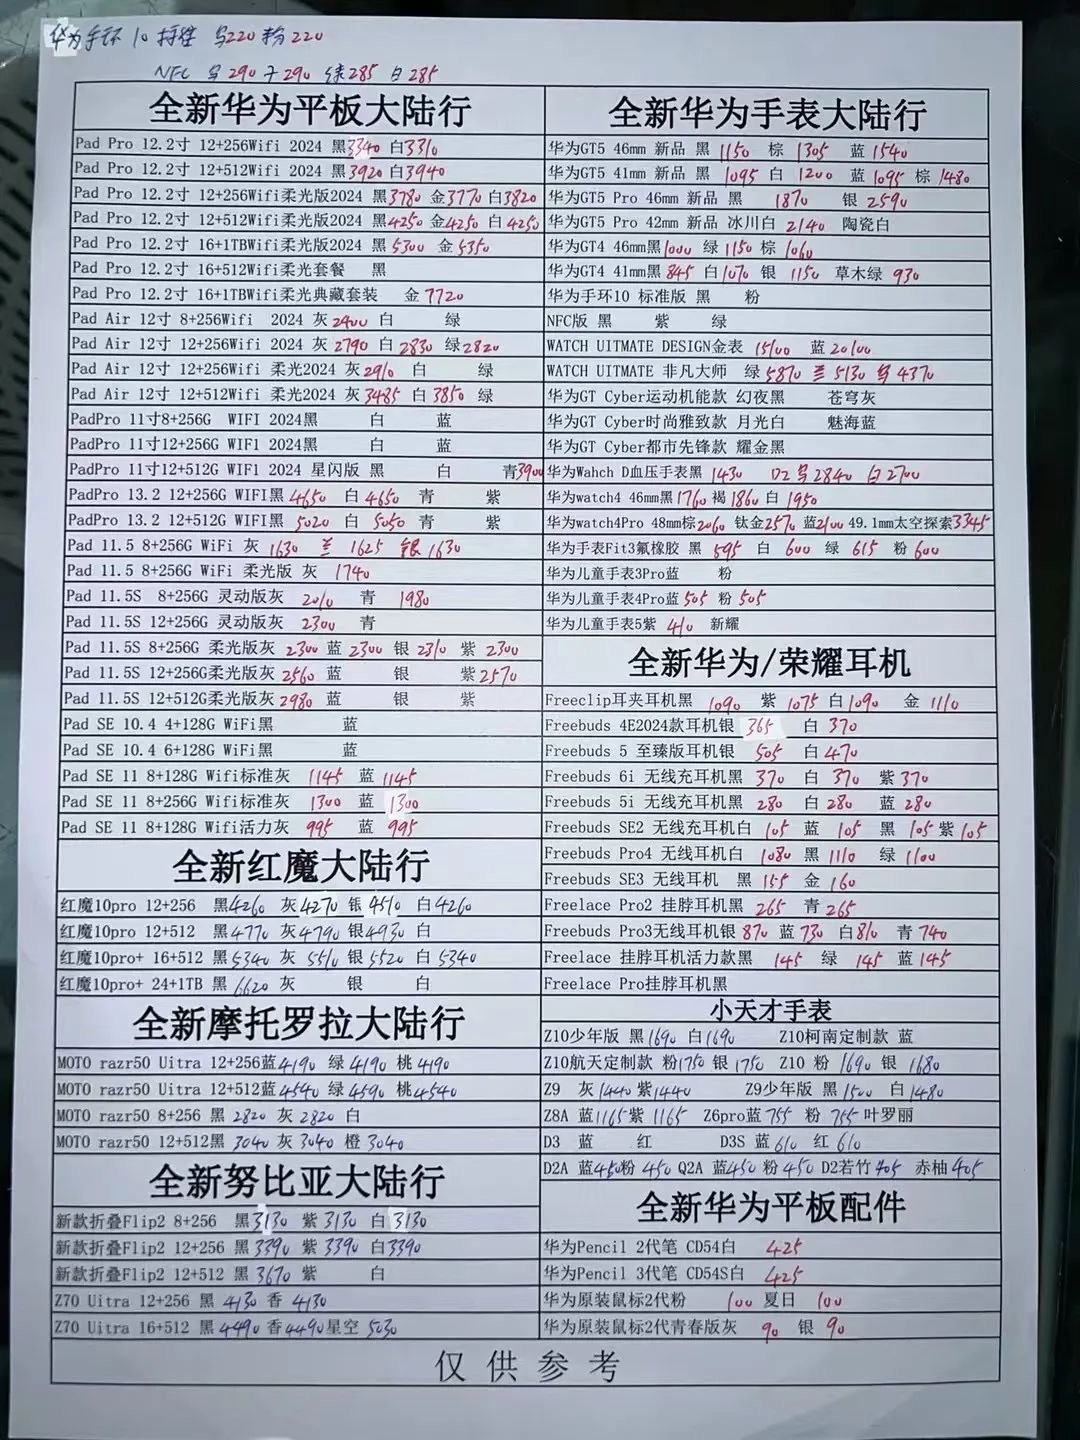 华为手环10 标准 黑220 粉220
NFC 黑290 290 绿285 白285
全新华为平板大陆行
Pad Pro 12.2寸 12+256Wifi 2024 黑3340 白3310
Pad Pro 12.2寸 12+512Wifi 2024 黑3920 白3940
Pad Pro 12.2寸 12+256Wifi柔光版2024 黑3780 金3770 白3820
Pad Pro 12.2寸 12+512Wifi柔光版2024 黑4250 金4250 白4250
Pad Pro 12.2寸 16+1TBWifi柔光版2024 黑5300 金5350
Pad Pro 12.2寸 16+512Wifi柔光套餐 黑
Pad Pro 12.2寸 16+1TBWifi柔光典藏套装 金7720
Pad Air 12寸 8+256Wifi 2024 灰2400 白 绿
Pad Air 12寸 12+256Wifi 2024 灰2790 白2830 绿2820
Pad Air 12寸 12+256Wifi 柔光2024 灰2910 白 绿
Pad Air 12寸 12+512Wifi 柔光2024 灰3485 白3850 绿
PadPro 11寸8+256G WIFI 2024黑 白 蓝
PadPro 11寸12+256G WIF1 2024黑 白 蓝
PadPro 11寸12+512G WIF1 2024 星闪版 黑 白 青3900
PadPro 13.2 12+256G WIFI黑4650 白4650 青 紫
PadPro 13.2 12+512G WIFI黑 5020 白 5050 青 紫
Pad 11.5 8+256G WiFi 灰 1630 兰 1625 银1630
Pad 11.5 8+256G WiFi 柔光版 灰 1740
Pad 11.5S 8+256G 灵动版灰 2010 青 1980
Pad 11.5S 12+256G 灵动版灰 2300 青
Pad 11.5S 8+256G 柔光版灰 2300 蓝 2300 银 2310 紫 2300
Pad 11.5S 12+256G柔光版灰2560 蓝 银 紫2570
Pad 11.5S 12+512G柔光版灰2980 蓝 银 紫
Pad SE 10.4 4+128G WiFi黑 蓝
Pad SE 10.4 6+128G WiFi黑 蓝
Pad SE 11 8+128G Wifi标准灰 1145 蓝1145
Pad SE 11 8+256G Wifi标准灰 1300 蓝 1300
Pad SE 11 8+128G Wifi活力灰 995 蓝 995
全新红魔大陆行
红魔10pro 12+256 黑4260 灰4270 银4510 白4260
红魔10pro 12+512 黑4770 灰4790 银4930 白
红魔10pro+ 16+512 黑5340 灰5510 银5520 白5340
红魔10pro+ 24+1TB 黑6620 灰 银 白
全新摩托罗拉大陆行
MOTO razr50 Uitra 12+256蓝4190 绿4190 桃4190
MOTO razr50 Uitra 12+512蓝4540 绿4590 桃4540
MOTO razr50 8+256 黑2820 灰2820 白
MOTO razr50 12+512黑 3040 灰3040 橙3040
全新努比亚大陆行
新款折叠Flip2 8+256 黑3130 紫3130 白3130
新款折叠Flip2 12+256 黑3390 紫3390 白3390
新款折叠Flip2 12+512 黑3670 紫 白
Z70 Uitra 12+256 黑 4130 香 4130
Z70 Uitra 16+512 黑 4490 香4490 星空 5030
全新华为手表大陆行
华为GT5 46mm 新品 黑 1150 棕 1305 蓝 1540
华为GT5 41mm 新品 黑 1095 白 1200 蓝 1095 棕 1480
华为GT5 Pro 46mm 新品 黑 1870 银 2590
华为GT5 Pro 42mm 新品 冰川白 2140 陶瓷白
华为GT4 46mm黑1000 绿1150 棕 1060
华为GT4 41mm黑845 白1070 银 1150 草木绿 930
华为手环10 标准版 黑 粉
NFC版 黑 紫 绿
WATCH UITMATE DESIGN金表 15100 蓝20100
WATCH UITMATE 非凡大师 绿5870 兰5130 黑4370
华为GT Cyber运动机能款 幻夜黑 苍穹灰
华为GT Cyber时尚雅致款 月光白 魅海蓝
华为GT Cyber都市先锋款 耀金黑
华为Wahch D血压手表黑 1430 D2 黑2840 白2700
华为watch4 46mm黑1760 褐1860 白 1950
华为watch4Pro 48mm棕2060 钛金2570 蓝2100 49.1mm太空探索3345
华为手表Fit3氟橡胶 黑 595 白 600 绿 615 粉600
华为儿童手表3Pro蓝 粉
华为儿童手表4Pro蓝505 粉505
华为儿童手表5紫 410 新耀
全新华为/荣耀耳机
Freeclip耳夹耳机黑 1090 紫1075 白1090 金 1110
Freebuds 4E2024款耳机银 365 白 370
Freebuds 5 至臻版耳机银 505 白470
Freebuds 6i 无线充耳机黑 370 白 370 紫370
Freebuds 5i 无线充耳机黑 280 白280 蓝280
Freebuds SE2 无线充耳机白 105 蓝 105 黑 105 紫105
Freebuds Pro4 无线耳机白 1080 黑 1110 绿 1100
Freebuds SE3 无线耳机 黑 155 金 160
Freelace Pro2 挂脖耳机黑 265 青265
Freebuds Pro3无线耳机银870 蓝730 白810 青740
Freelace 挂脖耳机活力款黑 145 绿 145 蓝145
Freelace Pro挂脖耳机黑
小天才手表
Z10少年版 黑1690 白1690 Z10柯南定制款 蓝
Z10航天定制款 粉1750 银1750 Z10 粉 1690 银 1680
Z9 灰1440 紫1440 Z9少年版 黑1500 白1480
Z8A 蓝1165 紫1165 Z6pro蓝755 粉 755 叶罗丽
D3 蓝 红 D3S 蓝610 红610
D2A 蓝450粉 450 Q2A 蓝450 粉450 D2若竹405 赤柚405
全新华为平板配件
华为Pencil 2代笔 CD54白 425
华为Pencil 3代笔 CD54S白 425
华为原装鼠标2代粉 100 夏日 100
华为原装鼠标2代青春版灰 90 银 90
仅供参考